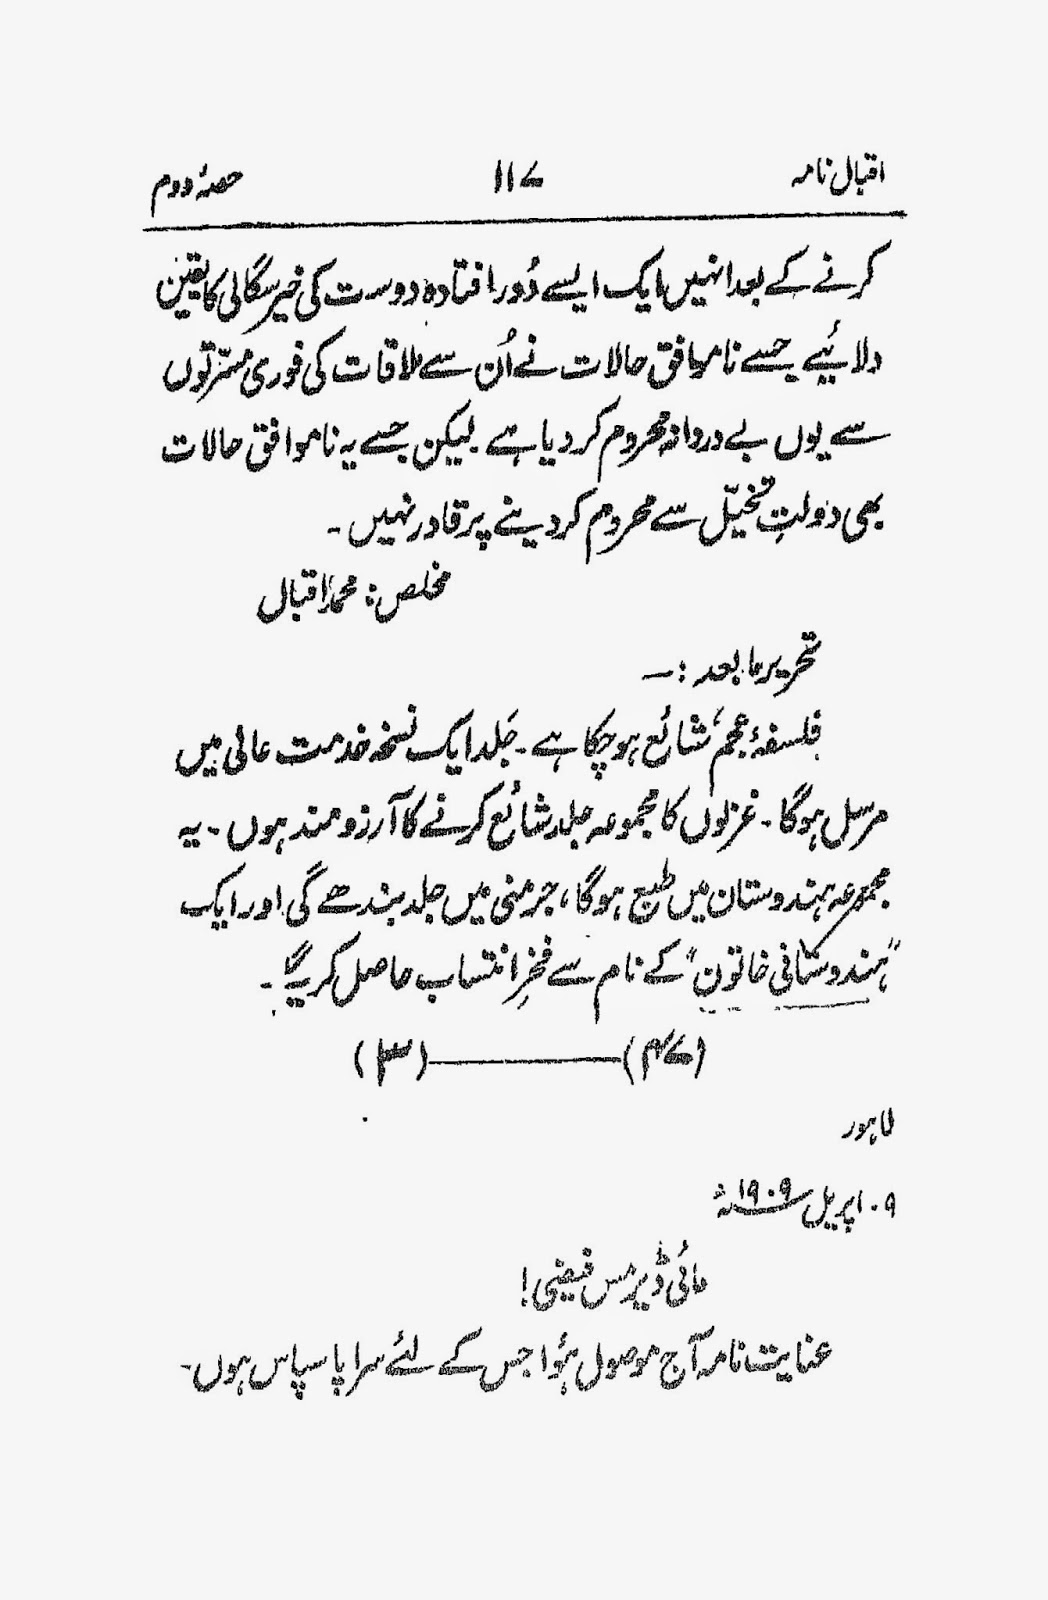 اقبال نامہ ۱۱۷ حصۂ دوم
کرنے کے بعد انہیں ایک ایسے دُور افتادہ دوست کی خیر سگالی کا یقین
دلائیے جسے ناموافق حالات نے اُن سے ملاقات کی فوری مسرّتوں
سے یوں بے دردانہ محروم کر دیا ہے لیکن جسے یہ ناموافق حالات
بھی دولتِ تخیّل سے محروم کر دینے پر قادر نہیں ۔
مخلص : محمد اقبال
تحریر ما بعد :۔
فلسفۂ عجم شائع ہو چکا ہے ۔ جلد ایک نسخہ خدمت عالی میں
مرسل ہوگا ۔ غزلوں کا مجموعہ جلد شائع کرنے کا آرزو مند ہوں ۔ یہ
مجموعہ ہندوستان میں طبع ہوگا، جرمنی میں جلد بندھے گی اور ایک
"ہندوستانی خاتون" کے نام سے فخرِ انتساب حاصل کریگا ۔
(۷۴) ــــــــــ (۳)
لاہور
۰۹ اپریل ۱۹۰۹ء
مائی ڈیر مس فیضی !
عنایت نامہ آج موصول ہؤا جس کے لئے سراپا سپاس ہوں ۔